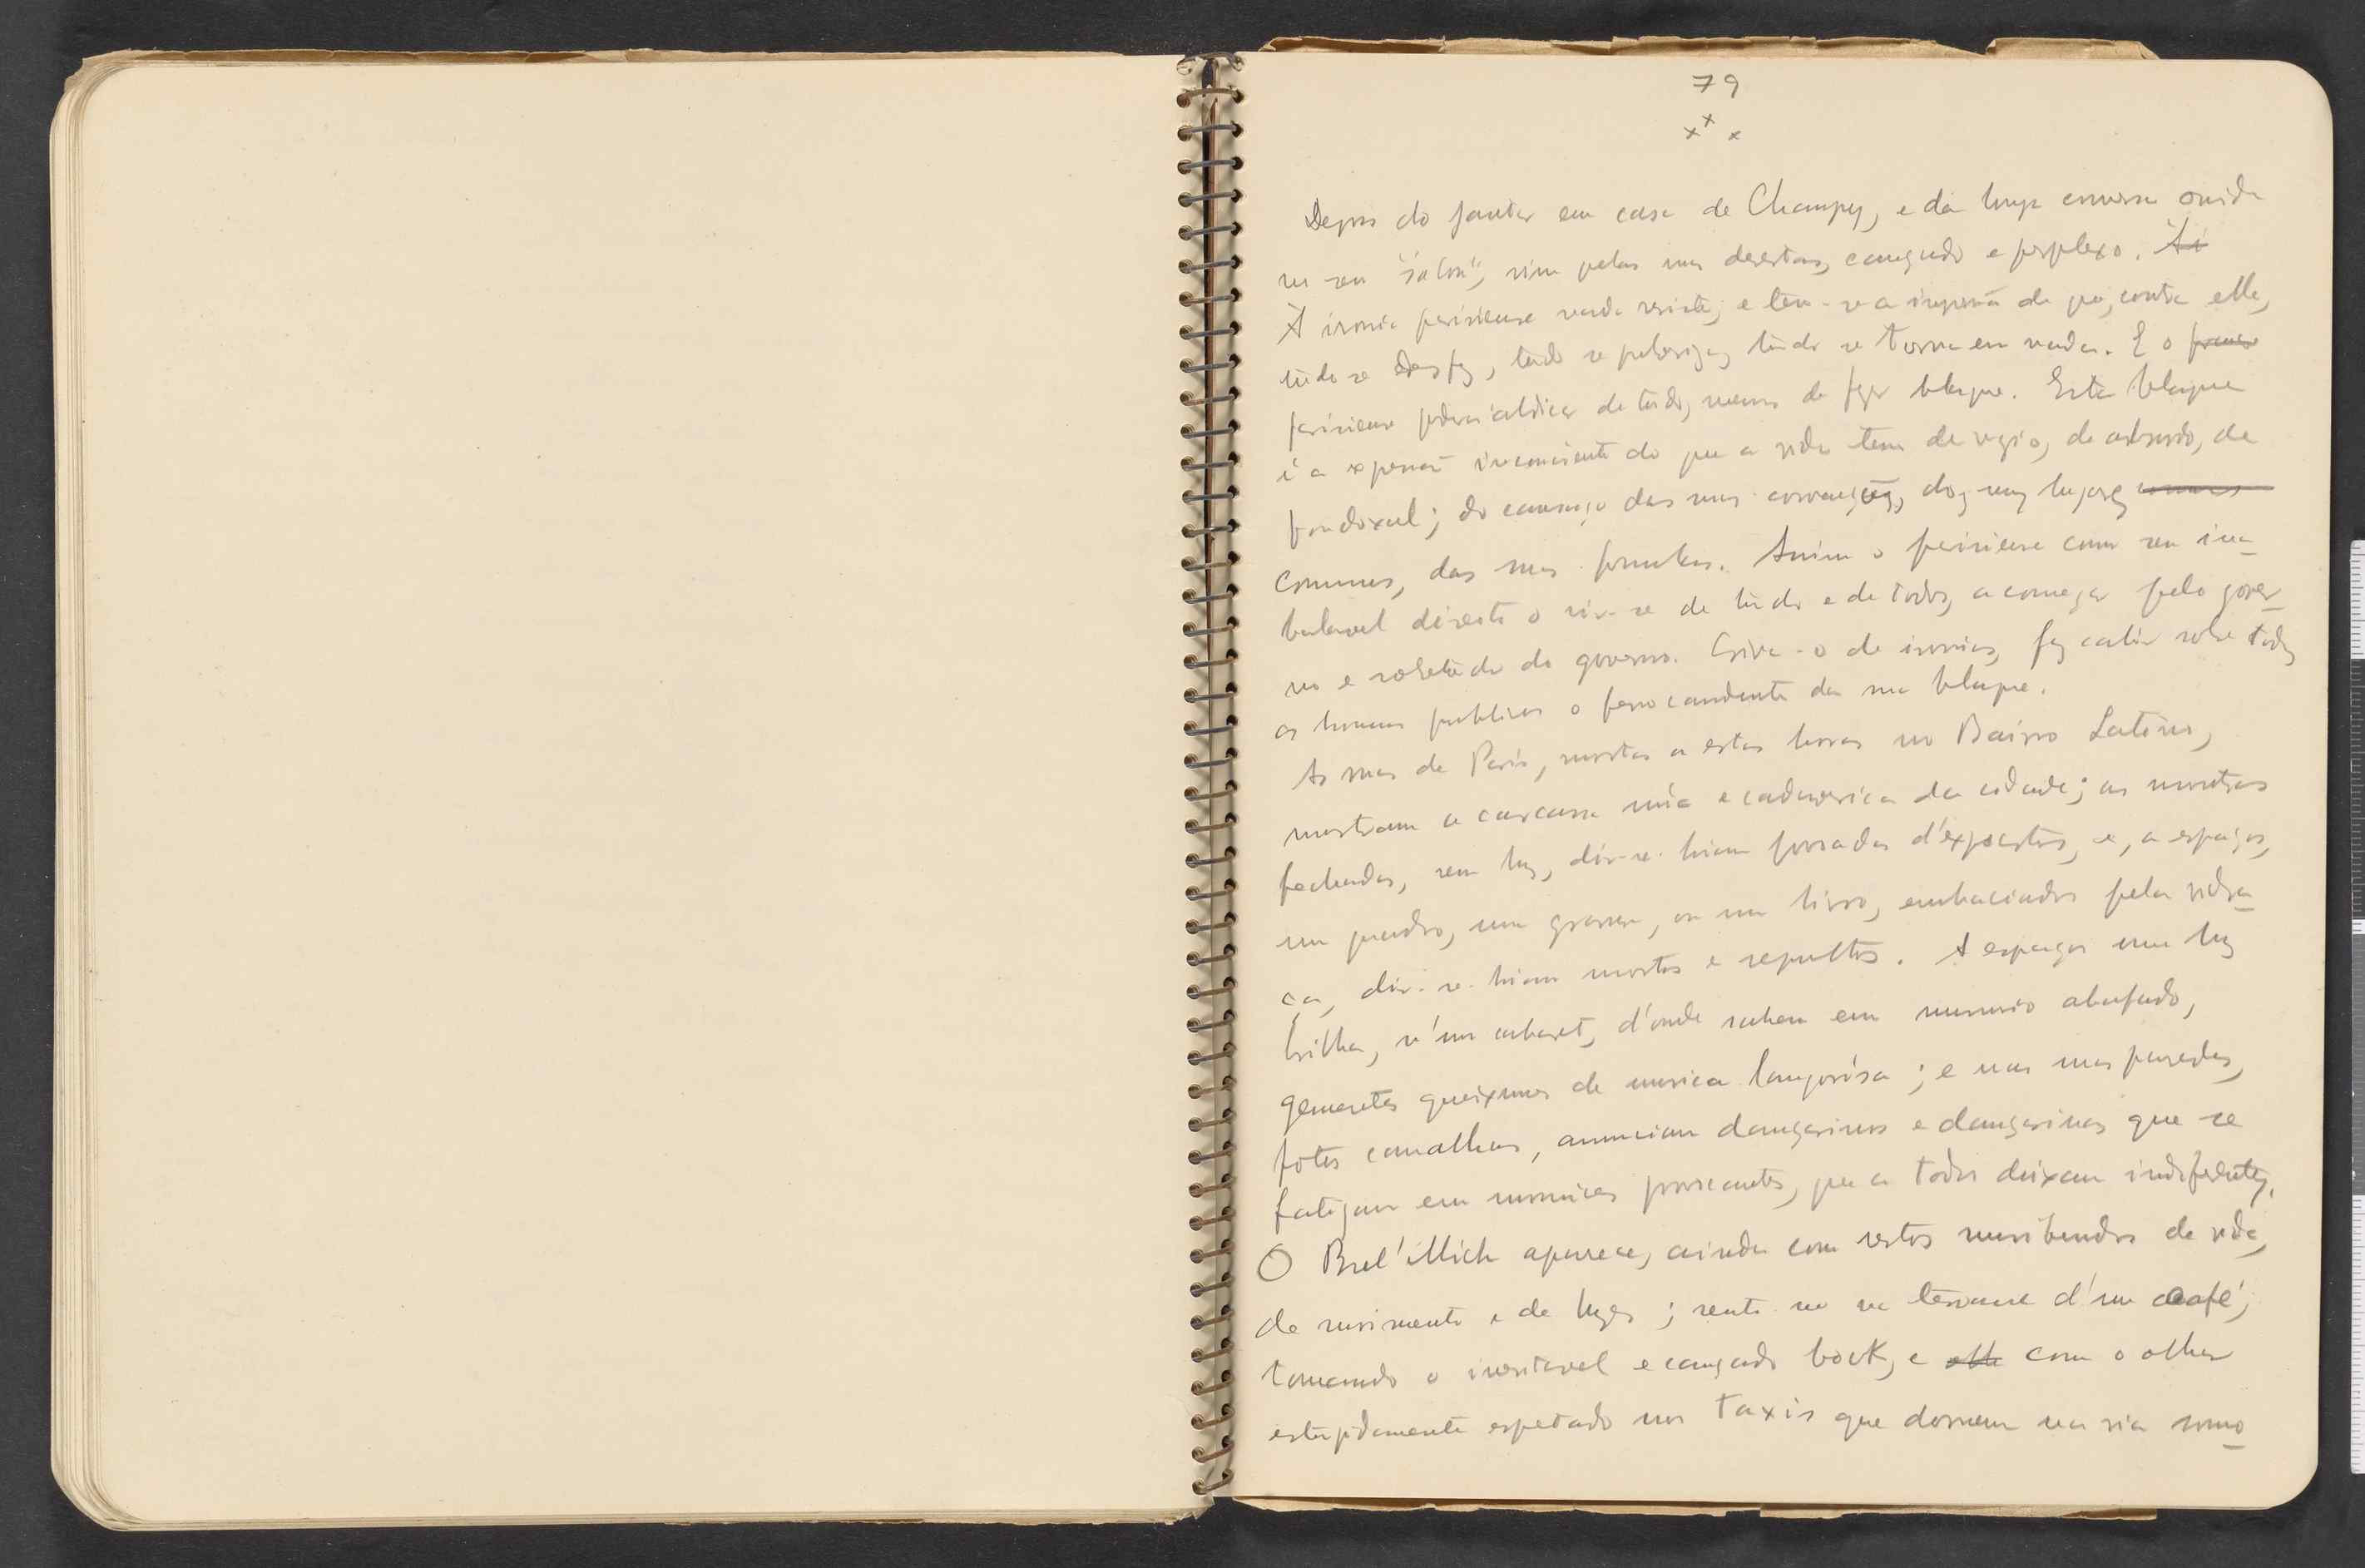 79
x x x
Depois do jantar em casa de Champy, e da longa conversa ouvida
no seu "salon", vim pelas ruas desertas, cançado e perplexo. A i
A ironia parisiense nada resiste; e tem-se a impressão de que, contra ella,
tudo se desfaz, tudo se pulverisa, tudo se torna em nada. E o
parisiense poderá abdicar de tudo, menos de fazer blague. Esta blague
é a expressão inconsciente do que a vida tem de vazio, de absurdo, de
paradoxal; do cansaço das suas convenções, dos seus lugares communs
communs, das suas formulas. Assim o parisiense com seu ina-
balavel direito o rir-se de tudo e de todos, a começar pelo gover-
no e sobretudo do governo. Criva-o de ironias, faz cahir sobre todos
os homens publicos o ferro candente da sua blague.
As ruas de Paris, mortas a estas horas no Bairro Latino,
mostram a carcassa núa e cadaverica da cidade; as montras
fechadas, sem luz, dir-se-hiam forradas d'expectros, e, a espaços,
um quadro, uma gravura, ou um livro, embaciados pela vidra-
ça, dir-se-hiam mortos e sepultos. A espaços uma luz
brilha, n'um cabaret, d'onde sahem em murmurio abafado,
gementes queixumes de musica langorósa; e nas suas paredes,
fotos canalhas, annunciam dançarinos e dançarinas que se
fatigam em mimicas provocantes, que a todos deixam indiferentes.
O Boul'Mich aparece, ainda com restos muribundos de vida,
de movimento e de luzes; sento-me na terrasse d'um café,
tomando o inevitavel e cançado bock, e olh com o olhar
estupidamente espetado nos taxis que dormem na via somno-